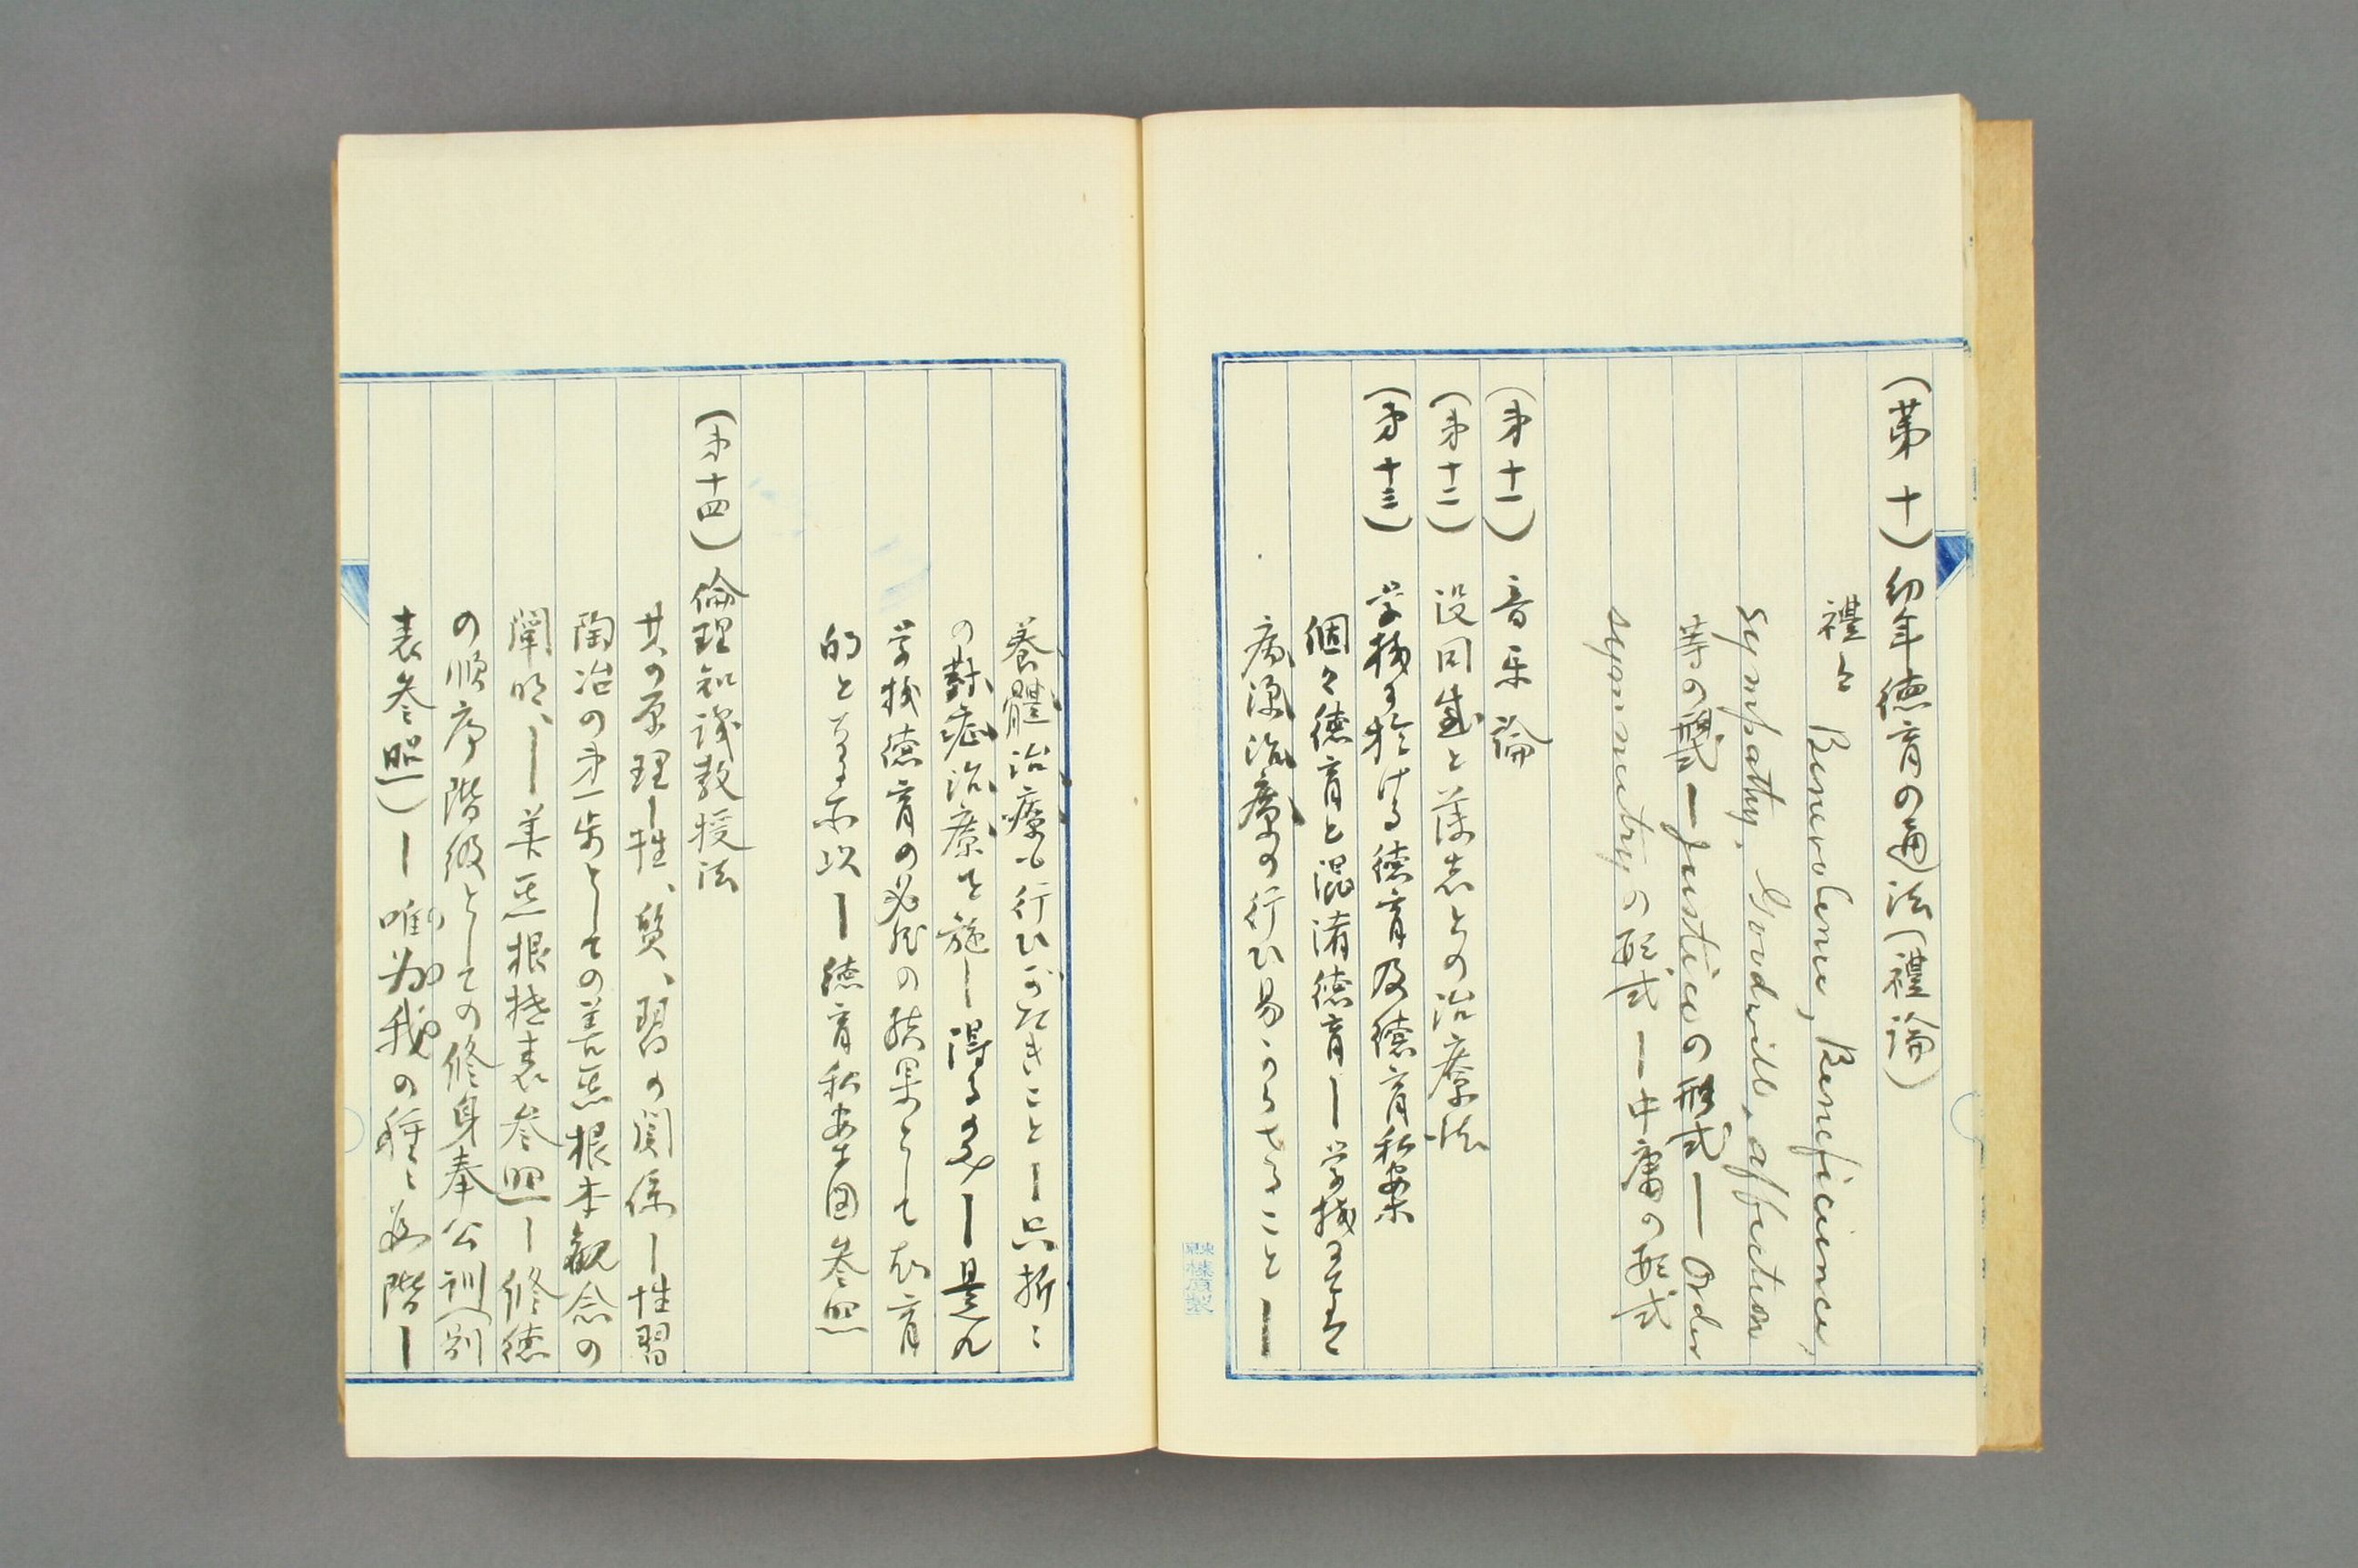 (第十)幼年徳育の通法(禮論)
禮は Benevolence, Beneficience,
Sympathy, Goodwill, affection
等の形式ーJusticeの形式ーOrder
symmetryの形式ー中庸の形式
(第十一) 音楽論
(第十二) 没同感と薄志との治療法
(第十三) 学校に於ける徳育及徳育私案
個々徳育と混淆徳育ー学校にては
病源治療の行ひ易からさることー
養體治療も行ひがたきことー只折々
の對症治療を施し得るのみー是れ
学校徳育の必然の結果として教育
的となる所以ー徳育私案図参照
(第十四)倫理知識教授法
其の原理ー性、質、習の関係ー性習
陶冶の第一歩としての善悪根本観念の
闡明、ー善悪根拠表参照ー修徳
の順序階級としての修身奉公訓(別
表参照)ー唯為我の種々の階ー